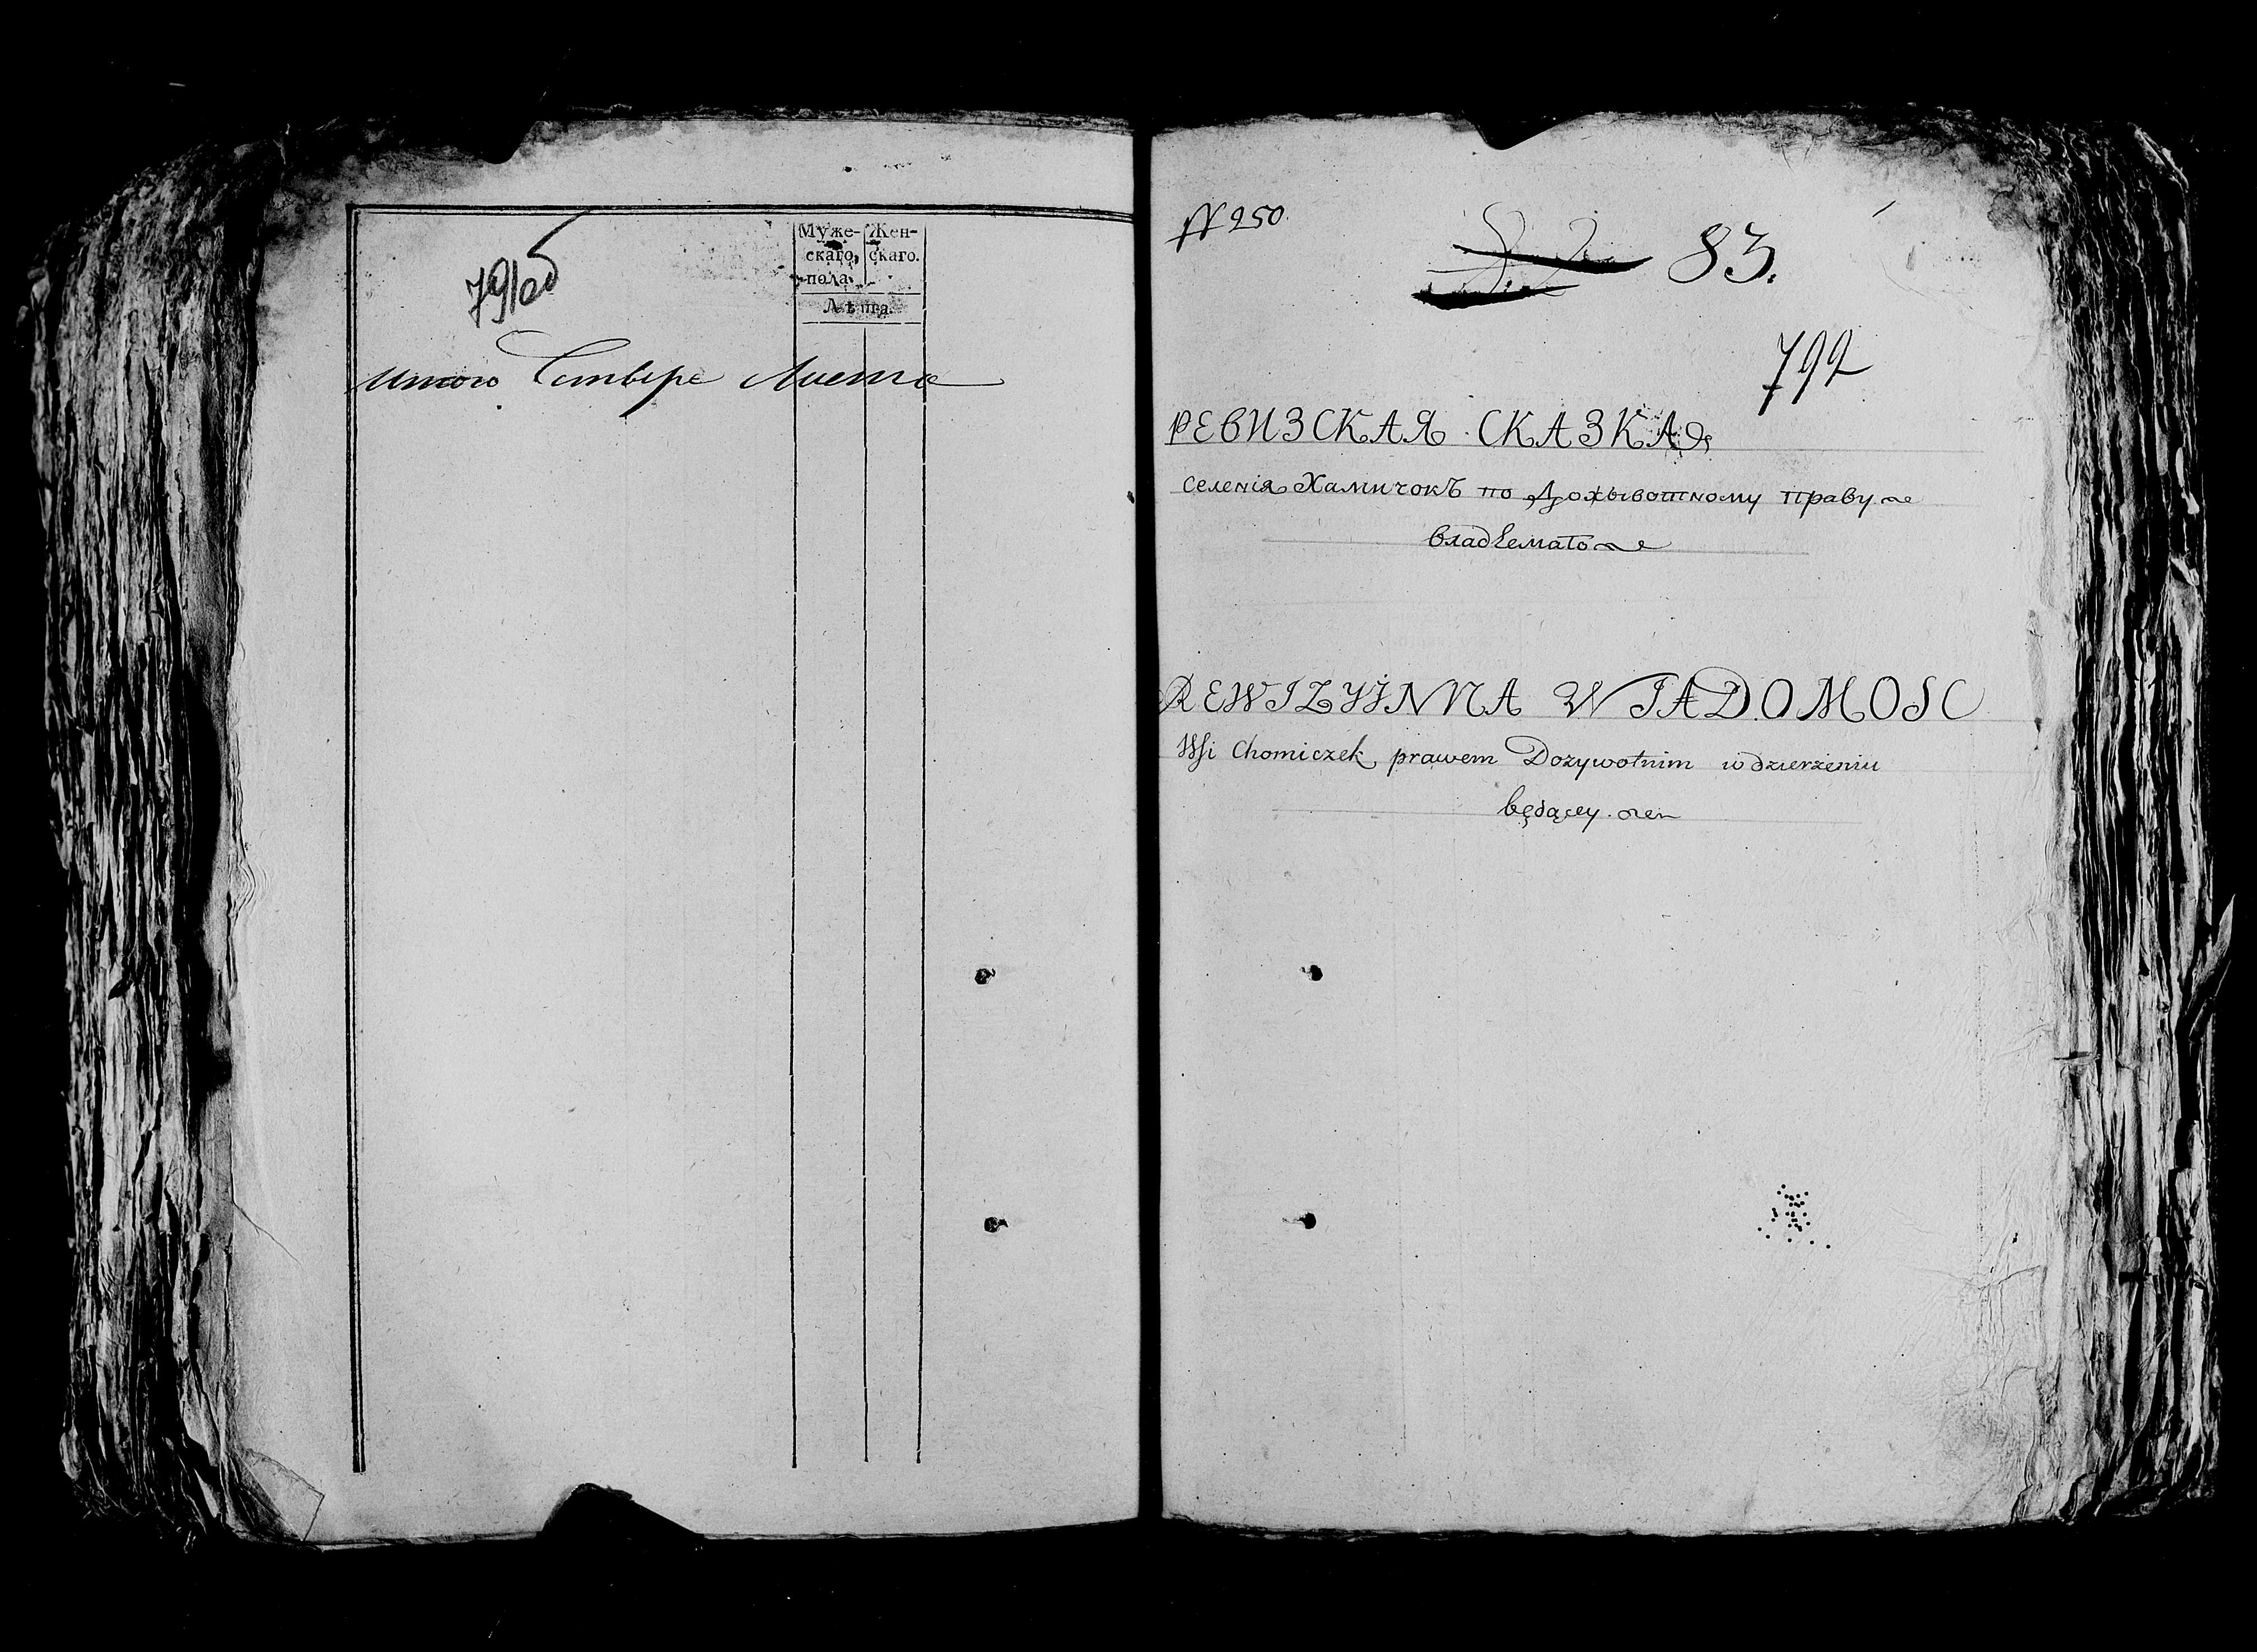 791 об
Муже- Жен-
скаго скаго.
пола.
Лѣта.
итого Четвере Листа
N 250.
83.
792
РЕВИЗСКАЯ СКАЗКА
селенія Хамичокъ по Дожывотному праву
владѣемаго
REWIZYINNA WIADOMOSC
Wsi Chomiczek prawem Dożywotnim w dzierżeniu
będącey.